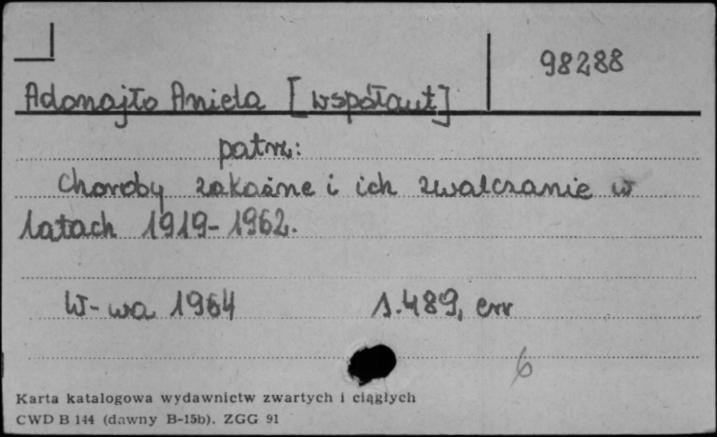 98288
Adonajło Aniela [współaut]
patrz:
Choroby zakaźne i ich zwalczanie w
latach 1919-1962.
W-wa 1964 s. 489, err
6
Karta katalogowa wydawnictw zwartych i ciągłych
CWD B 144 (dawny B-15b). ZGG 91